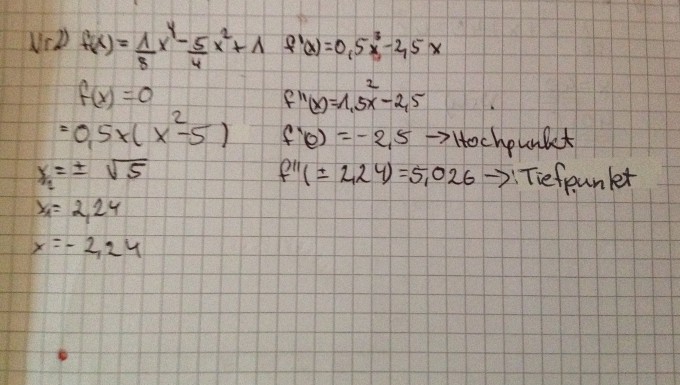 Nr2) f(x) = 1/8 x⁴ - 5/4 x² + 1 f'(x) = 0,5x³ - 2,5x
f(x) = 0 f''(x) = 1,5x² - 2,5
= 0,5x(x² - 5) f''(0) = -2,5 → Hochpunkt
x½ = ± √5 f''(± 2,24) = 5,026 → Tiefpunkt
x₁ = 2,24
x = - 2,24